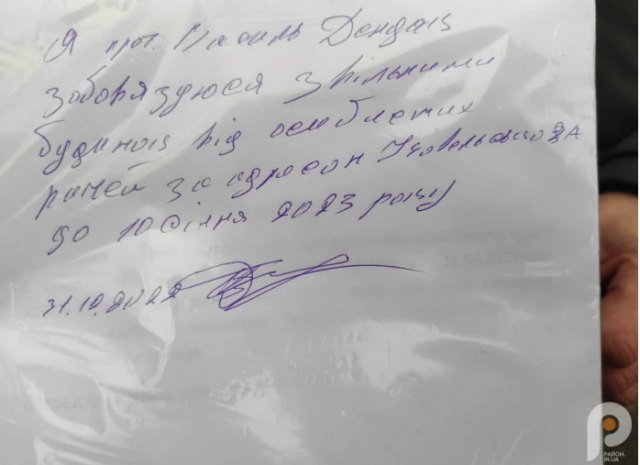 Я прот. Василь Дендак
зобовязуюся звільнити
будинок від особистих
речей за адресою
до 10 Січня 2023 року
31.12.2022
РАЙОН.
IN.UA